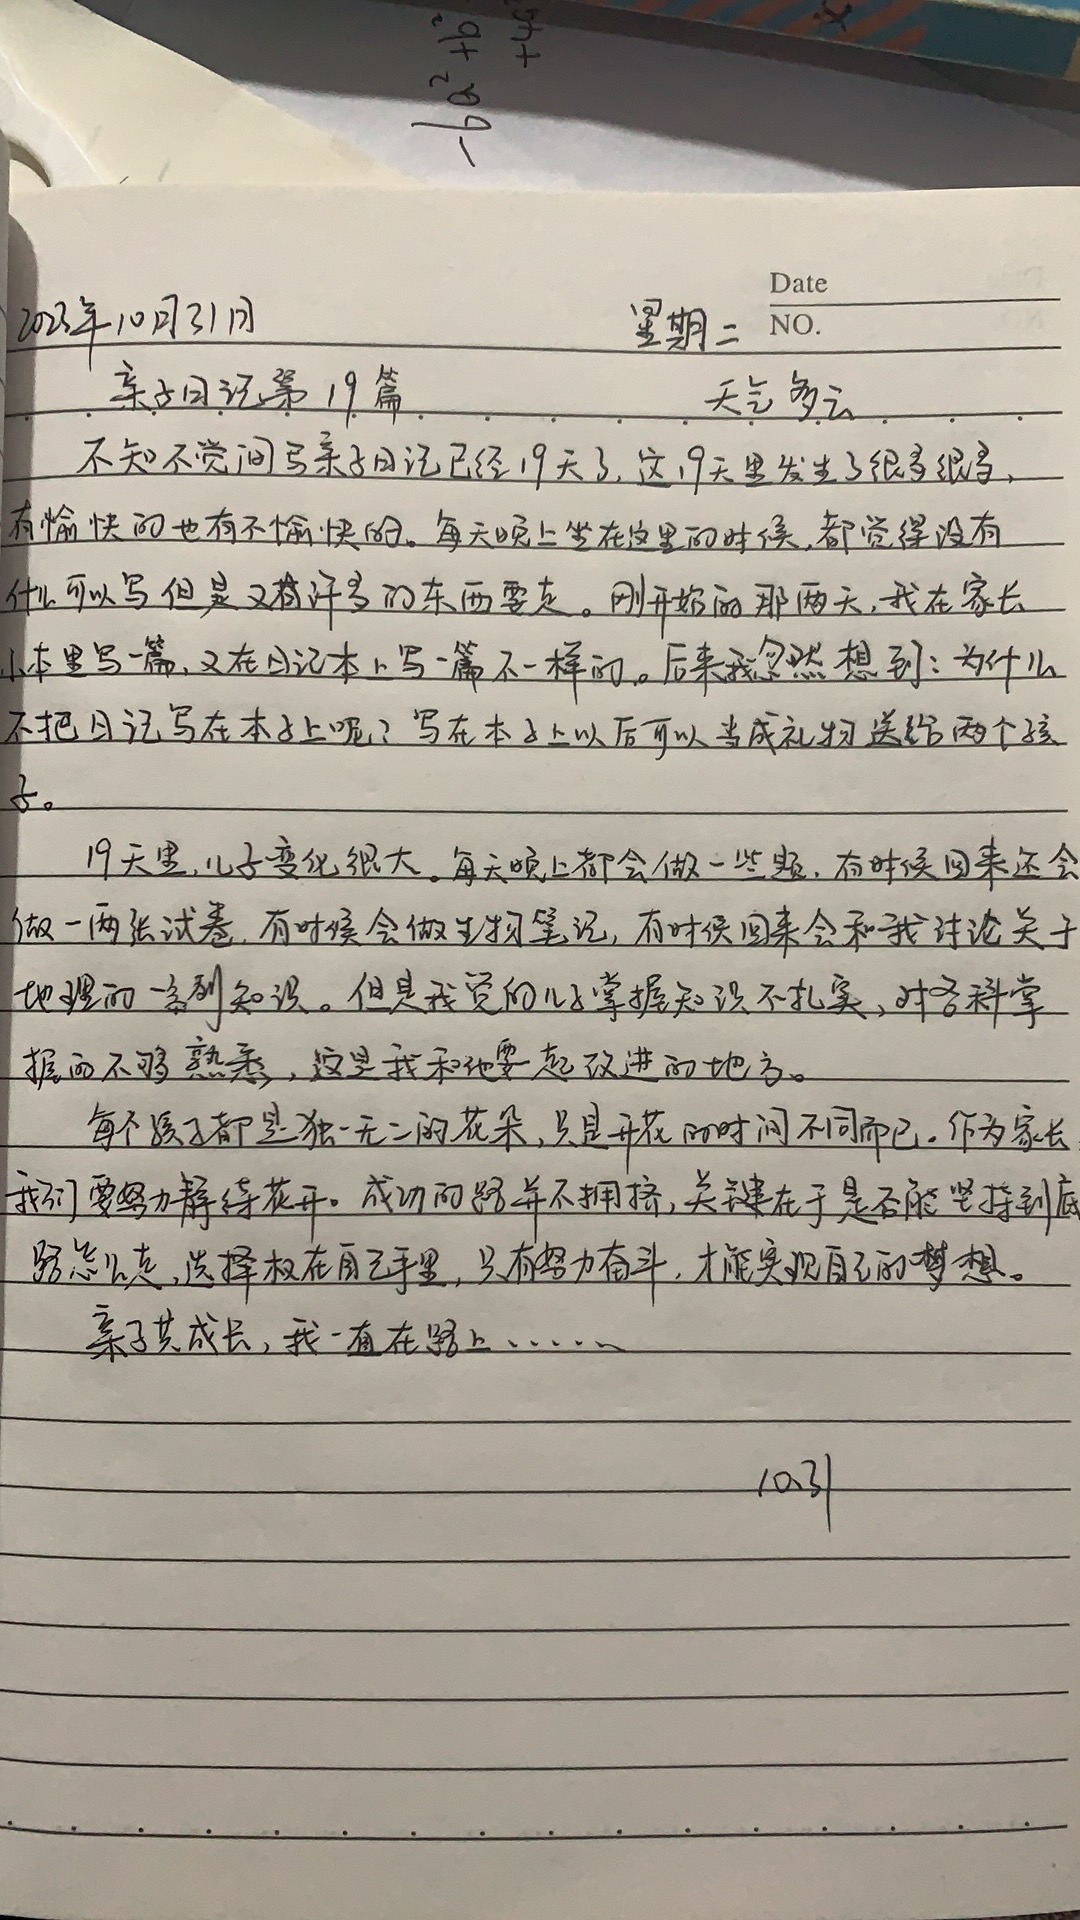 -6a²+b²
+4
Date
2023年10月31日 星期二 NO.
亲子日记第19篇 天气多云
不知不觉间写亲子日记已经19天了,这19天里发生了很多很多,
有愉快的也有不愉快的。每天晚上坐在这里的时候,都觉得没有
什么可以写但是又有许多的东西要走。刚开始的那两天,我在家长
小本里写一篇,又在日记本上写一篇不一样的。后来我忽然想到:为什么
不把日记写在本子上呢?写在本子上以后可以当成礼物送给两个孩
子。
19天里,儿子变化很大。每天晚上都会做一些题,有时候回来还会
做一两张试卷,有时候会做生物笔记,有时候回来会和我讨论关于
地理的一系列知识。但是我觉的儿子掌握知识不扎实,对各科掌
握的不够熟悉,这是我和他要一起改进的地方。
每个孩子都是独一无二的花朵,只是开花的时间不同而已。作为家长,
我们要努力静待花开。成功的路并不拥挤,关键在于是否能坚持到底
路怎么走,选择权在自己手里,只有努力奋斗,才能实现自己的梦想。
亲子共成长,我一直在路上......
10.31